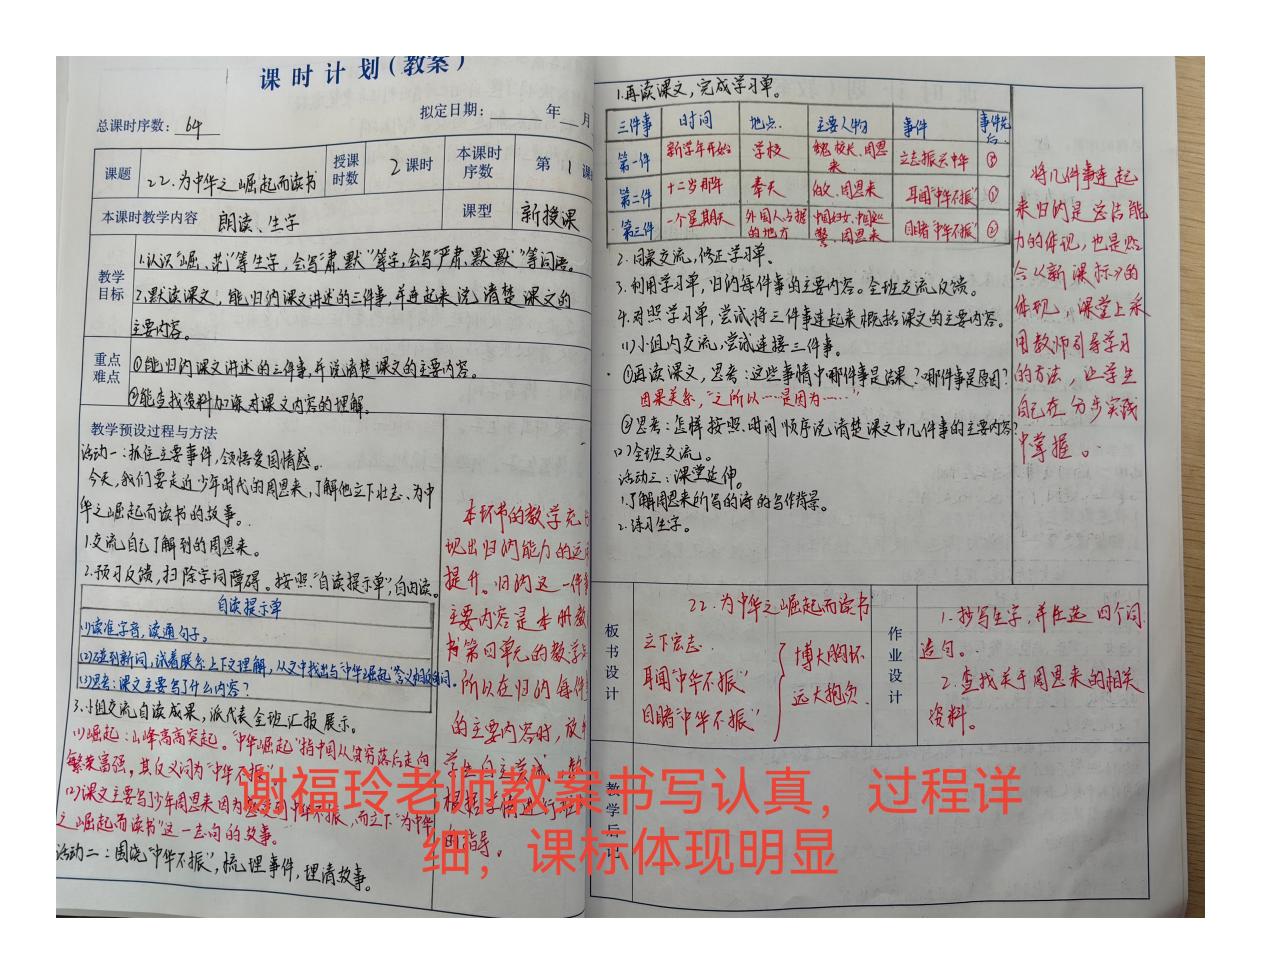 课时计划(教案)
拟定日期: 年 月
总课时序数: 64
课题 22.为中华之崛起而读书 授课时数 2课时 本课时序数 第1课
本课时教学内容 朗读、生字 课型 新授课
教学目标
1.认识"崛、范"等生字,会写"肃、默"等字,会写"严肃、默默"等词语。
2.默读课文,能归纳课文讲述的三件事,并连起来说清楚课文的
主要内容。
重点难点
①能归纳课文讲述的三件事,并说清楚课文的主要内容。
②能查找资料加深对课文内容的理解。
教学预设过程与方法
活动一:抓住主要事件,领悟爱国情感。
今天,我们要走近少年时代的周恩来,了解他立下壮志、为中
华之崛起而读书的故事。
1.交流自己了解到的周恩来。
2.预习反馈,扫除字词障碍。按照"自读提示单",自由读。
自读提示单
(1)读准字音,读通句子。
(2)碰到新词,试着联系上下文理解,从文中找出与"中华崛起"含义相反的词。
(3)思考:课文主要写了什么内容?
3.小组交流自读成果,派代表全班汇报展示。
(1)崛起:山峰高高突起。"中华崛起"指中国从贫穷落后走向
繁荣富强,其反义词为"中华不振"
(2)课文主要写了少年周恩来因为 到中华不振,而立下"为中华
之崛起而读书"这一志向的故事。
活动二:围绕"中华不振",梳理事件,理清故事。
本环节的教学充
现出归纳能力的
提升。归纳这一件
主要内容是本册教
书第四单元的教学
所以在归纳每件
的主要内容时,放
学生自主尝试,教
根据学情进行
的指导。
1.再读课文,完成学习单。
三件事 时间 地点 主要人物 事件 事件先后
第一件 新学年开始 学校 魏校长、周恩来 立志振兴中华 ③
第二件 十二岁那年 奉天 伯父、周恩来 耳闻"中华不振" ①
第三件 一个星期天 外国人占据的地方 中国妇女、中国巡警、周恩来 目睹"中华不振" ②
2.同桌交流,修正学习单。
3.利用学习单,归纳每件事的主要内容。全班交流反馈。
4.对照学习单,尝试将三件事连起来概括课文的主要内容。
(1)小组内交流,尝试连接三件事。
①再读课文,思考:这些事情中哪件事是结果?哪件事是原因?
因果关系,"之所以……是因为……"
②思考:怎样按照时间顺序说清楚课文中几件事的主要内容?
(2)全班交流。
活动三:课堂延伸。
1.了解周恩来所写的诗的写作背景。
2.练习生字。
将几件事连起
来归纳是总结能
力的体现,也是贴
合《新课标》的
体现,课堂上采
用教师引导学习
的方法,让学生
自己在分步实践
中掌握。
板书设计
22.为中华之崛起而读书
立下宏志
耳闻"中华不振"
目睹"中华不振"
博大胸怀
远大抱负
作业设计
1.抄写生字,并任选四个词
造句。
2.查找关于周恩来的相关
资料。
教学后记
谢福玲老师教案书写认真，过程详
细，课标体现明显